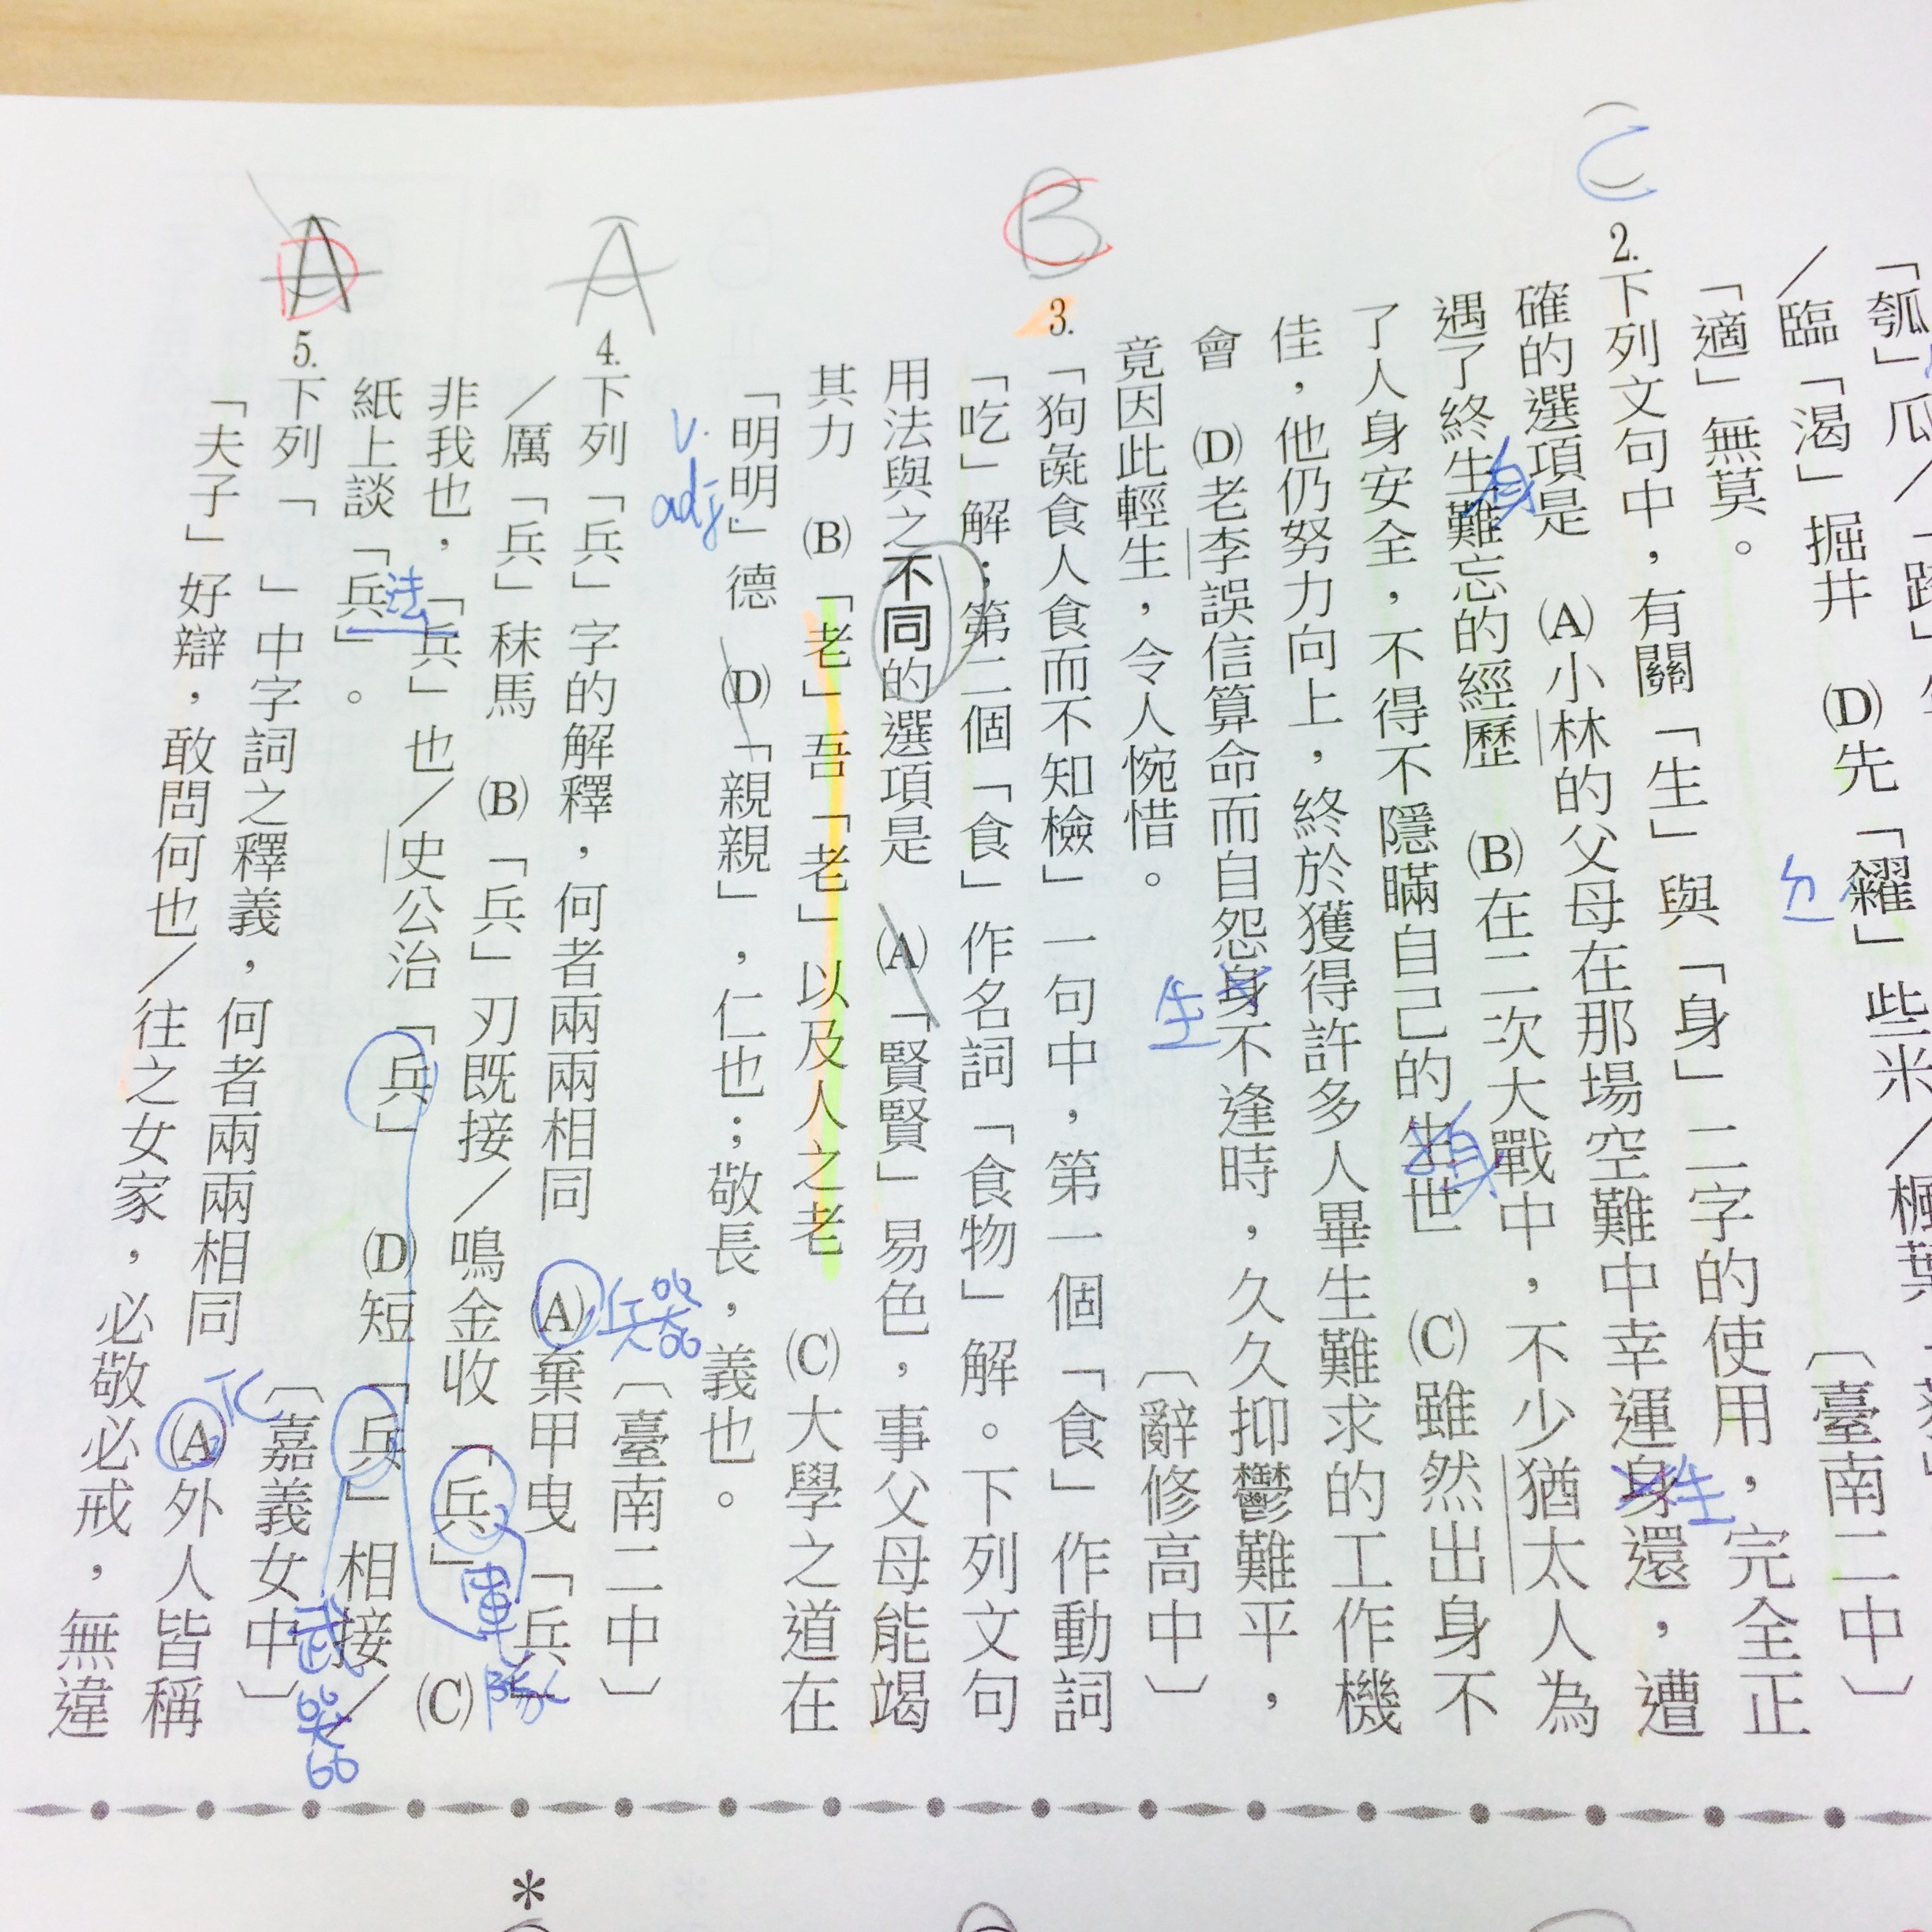 「瓠」瓜／
／臨「渴」掘井　(D)先「糴」些米／楓葉
「適」無莫。
〔臺南二中〕
C
2.下列文句中，有關「生」與「身」二字的使用，完全正
確的選項是　(A)小林的父母在那場空難中幸運身還，遭
生
遇了終生難忘的經歷　(B)在二次大戰中，不少猶太人為
身
了人身安全，不得不隱瞞自己的生世　(C)雖然出身不
身
佳，他仍努力向上，終於獲得許多人畢生難求的工作機
會　(D)老李誤信算命而自怨身不逢時，久久抑鬱難平，
生
竟因此輕生，令人惋惜。
〔辭修高中〕
B
C
3.「狗彘食人食而不知檢」一句中，第一個「食」作動詞
「吃」解；第二個「食」作名詞「食物」解。下列文句
用法與之不同的選項是　(A)「賢賢」易色，事父母能竭
其力　(B)「老」吾「老」以及人之老　(C)大學之道在
「明明」德　(D)「親親」，仁也；敬長，義也。
v.
adj.
A
4.下列「兵」字的解釋，何者兩兩相同
〔臺南二中〕
(A)棄甲曳「兵」
兵器
／厲「兵」秣馬　(B)「兵」刃既接／鳴金收「兵」　(C)
軍隊
非我也，「兵」也／史公治「兵」　(D)短「兵」相接／
武器
紙上談「兵」。
法
A
D
5.下列「　」中字詞之釋義，何者兩兩相同
〔嘉義女中〕
(A)外人皆稱
「夫子」好辯，敢問何也／往之女家，必敬必戒，無違
*